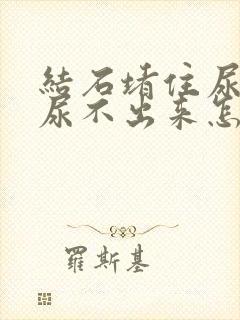 結石堵住尿
尿不出来怎
羅斯基